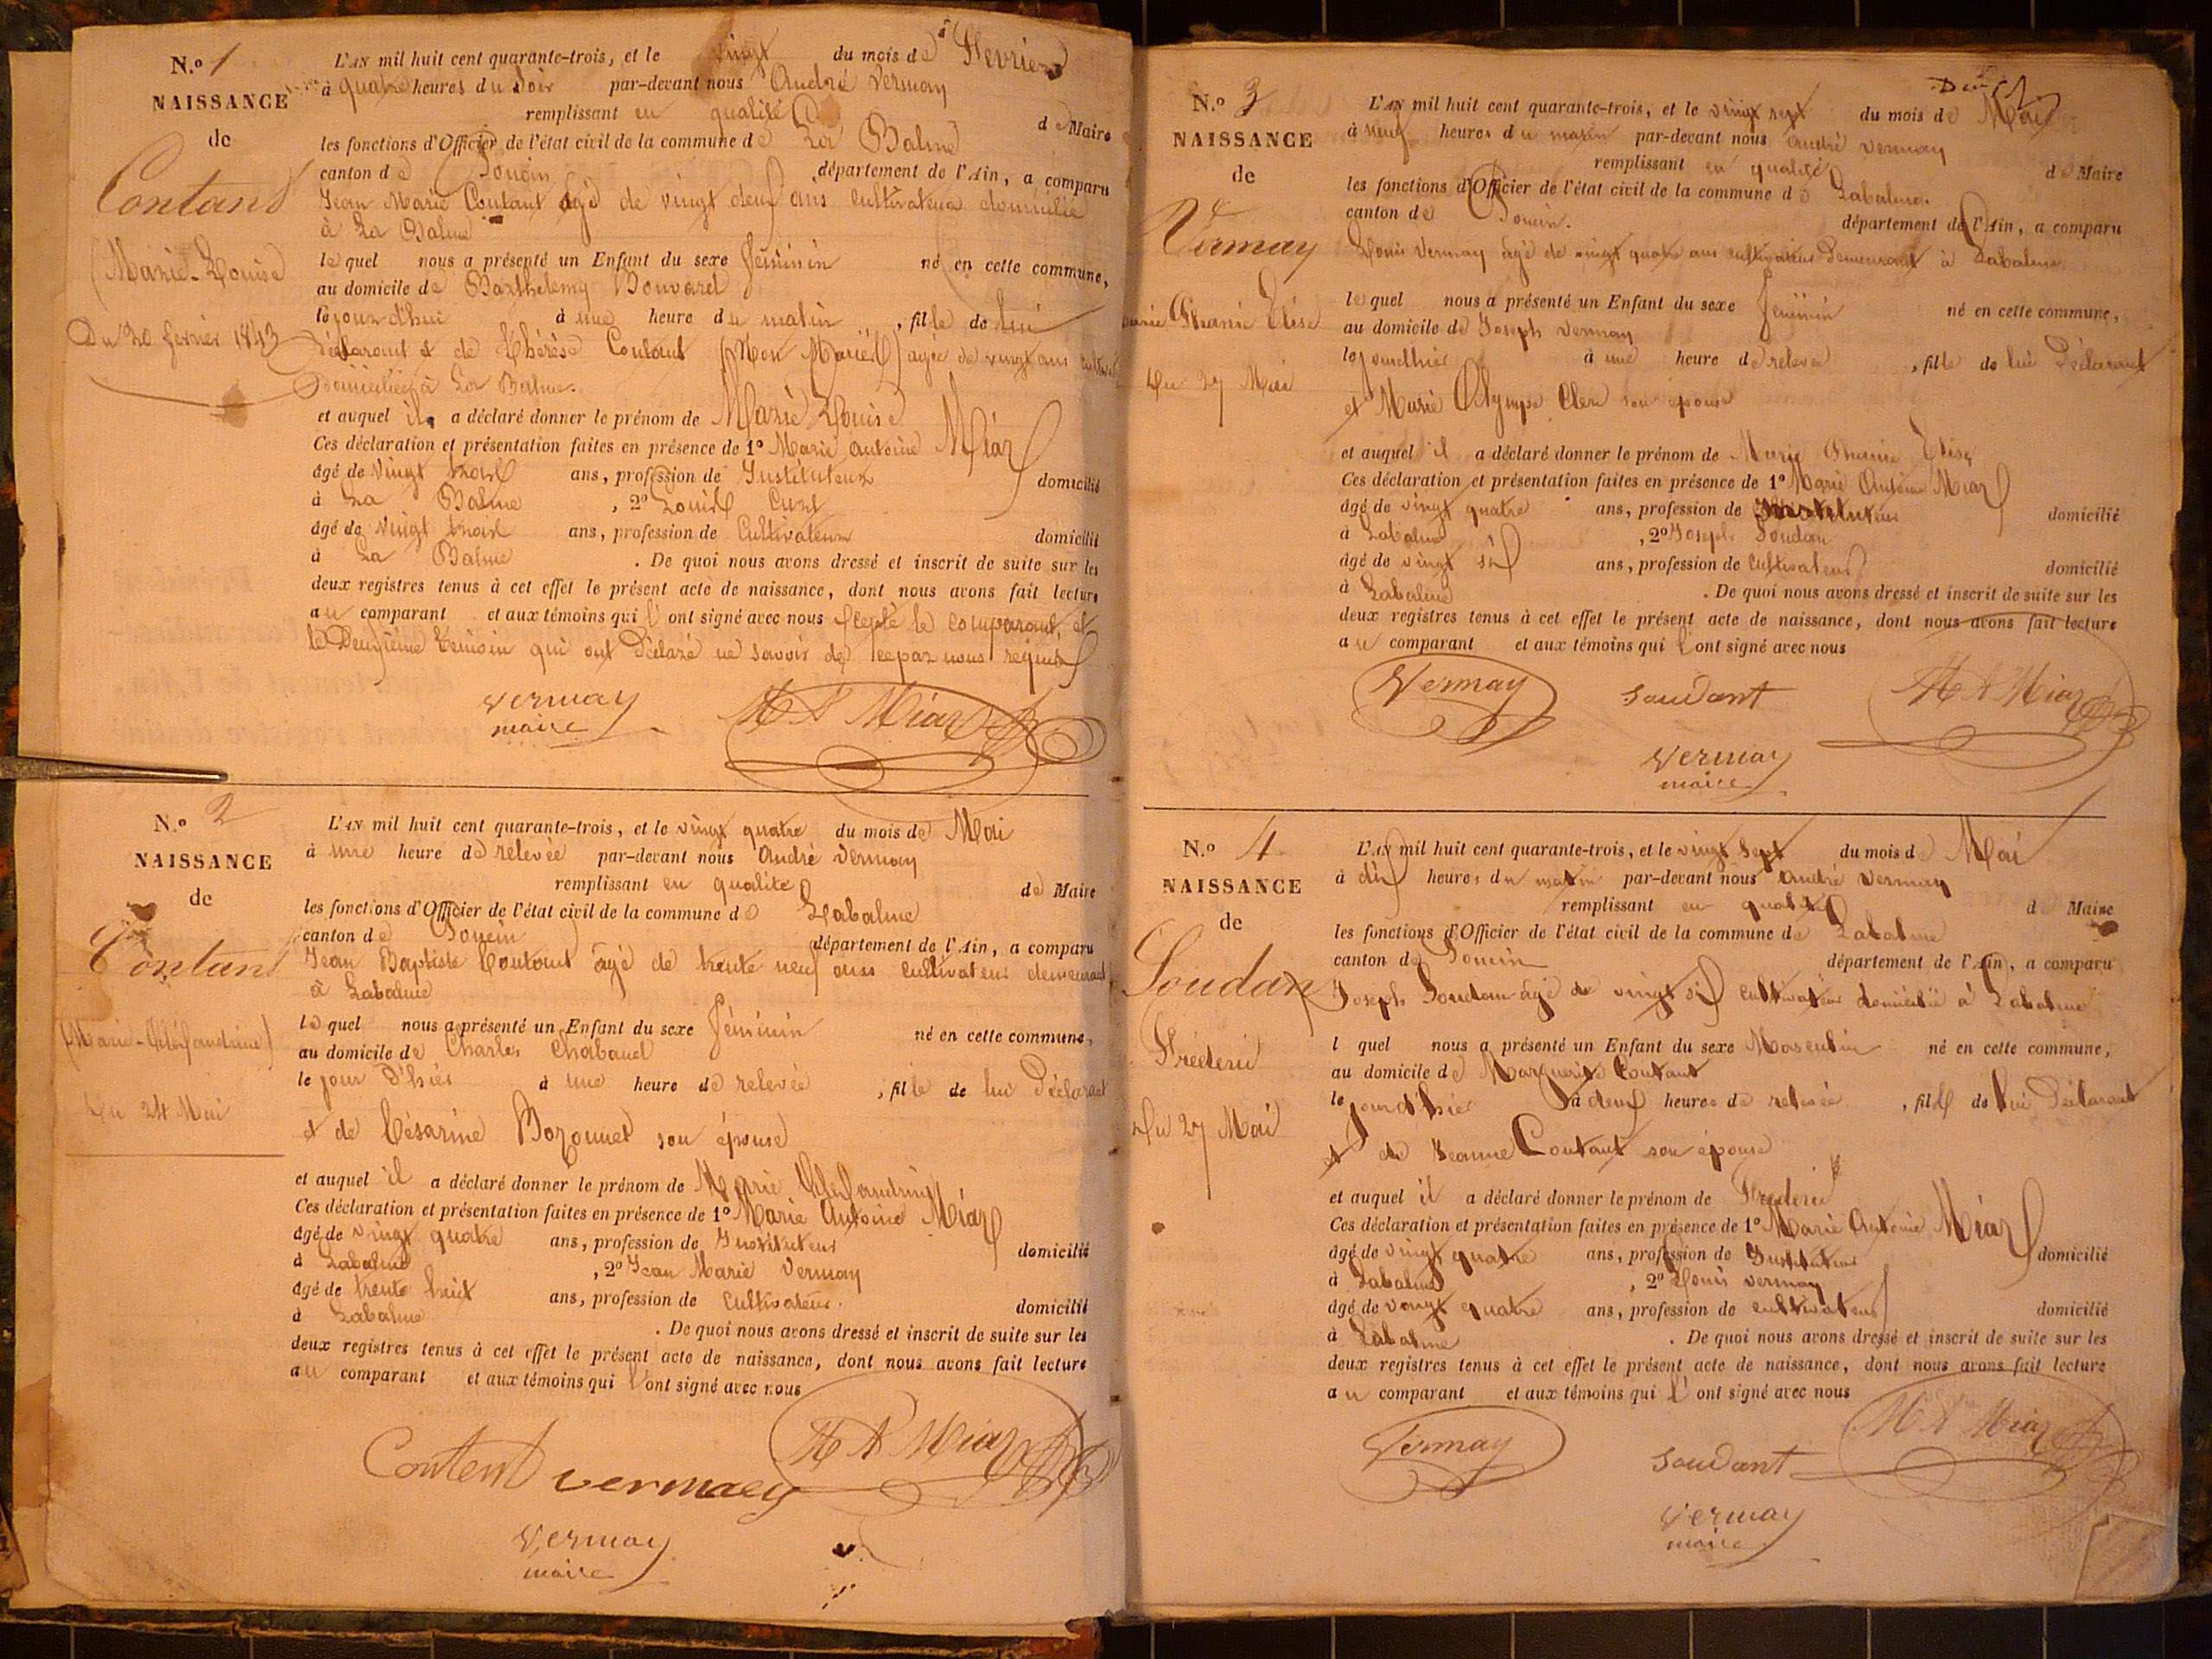 N.o 1
NAISSANCE
de
Contant
(Marie-Louise)
Du 20 fevrier 1843
L'AN mil huit cent quarante-trois, et le vingt du mois de Fevrier
à quatre heures du Soir par-devant nous André Vermay
remplissant en qualité de Maire
les fonctions d'Officier de l'état civil de la commune de La Balme
canton de Poncin département de l'Ain, a comparu
Jean Marie Contant agé de vingt deux ans cultivateur domicilié
à La Balme
lequel nous a présenté un Enfant du sexe féminin né en cette commune,
au domicile de Barthelemy Bouvard
le jourd'hui à une heure du matin, fille de lui
déclarant et de Thérèse Contant (Non Mariés) agée de vingt ans
Domiciliée à La Balme.
et auquel il a déclaré donner le prénom de Marie Louise
Ces déclaration et présentation faites en présence de 1o Marie Antoine Miaz
âgé de Vingt trois ans, profession de Instituteur domicilié
à La Balme, 2o Louis
âgé de Vingt trois ans, profession de Cultivateur domicilié
à La Balme. De quoi nous avons dressé et inscrit de suite sur les
deux registres tenus à cet effet le présent acte de naissance, dont nous avons fait lecture
au comparant et aux témoins qui l'ont signé avec nous Excepté le comparant, et
le Deuxième témoin qui ont Déclaré ne savoir de ce par nous requis
Vermay
maire
M A Miaz
N.o 2
NAISSANCE
de
Contant
(Marie-Alexandrine)
Du 24 Mai
L'AN mil huit cent quarante-trois, et le vingt quatre du mois de Mai
à une heure de relevée par-devant nous André Vermay
remplissant en qualité de Maire
les fonctions d'Officier de l'état civil de la commune de Labalme
canton de Poncin département de l'Ain, a comparu
Jean Baptiste Contant âgé de trente neuf ans cultivateur demeurant
à Labalme
lequel nous a présenté un Enfant du sexe féminin né en cette commune,
au domicile de Charles Chabaud
le jour d'hier à une heure de relevée, fille de lui Déclarant
et de Césarine son épouse
et auquel il a déclaré donner le prénom de Marie Alexandrine
Ces déclaration et présentation faites en présence de 1o Marie Antoine Miaz
âgé de vingt quatre ans, profession de Instituteur domicilié
à Labalme, 2o Jean Marie Vermay
âgé de trente huit ans, profession de Cultivateur. domicilié
à Labalme. De quoi nous avons dressé et inscrit de suite sur les
deux registres tenus à cet effet le présent acte de naissance, dont nous avons fait lecture
au comparant et aux témoins qui l'ont signé avec nous
Content vermaey M A Miaz
Vermay
maire
N.o 3
NAISSANCE
de
Vermay
Phanie Elise
Du 27 Mai
L'AN mil huit cent quarante-trois, et le vingt sept du mois de Mai
à neuf heures du matin par-devant nous André Vermay
remplissant en qualité de Maire
les fonctions d'Officier de l'état civil de la commune de Labalme.
canton de Poncin. département de l'Ain, a comparu
Louis Vermay âgé de vingt quatre ans cultivateur Demeurant à Labalme
lequel nous a présenté un Enfant du sexe féminin né en cette commune,
au domicile de Joseph Vermay
le jourdhier à une heure de relevé, fille de lui Déclarant
et Marie Olympe Clerc son épouse
et auquel il a déclaré donner le prénom de Marie Phanie Elise
Ces déclaration et présentation faites en présence de 1o Marie Antoine Miaz
âgé de vingt quatre ans, profession de Instituteur domicilié
à Labalme, 2o Joseph Soudan
âgé de vingt six ans, profession de Cultivateur domicilié
à Labalme. De quoi nous avons dressé et inscrit de suite sur les
deux registres tenus à cet effet le présent acte de naissance, dont nous avons fait lecture
au comparant et aux témoins qui l'ont signé avec nous
Vermay Soudant M A Miaz
Vermay
maire
N.o 4
NAISSANCE
de
Soudan
Fréderic
Du 27 Mai
L'AN mil huit cent quarante-trois, et le vingt Sept du mois de Mai
à dix heures du matin par-devant nous André Vermay
remplissant en qualité de Maire
les fonctions d'Officier de l'état civil de la commune de Labalme
canton de Poncin département de l'Ain, a comparu
Joseph Soudan âgé de vingt six cultivateur domicilié à Labalme
l quel nous a présenté un Enfant du sexe Masculin né en cette commune,
au domicile de Marguerite Contant
le jour d'hier à deux heures de relevée, fils de lui Déclarant
et de Jeanne Contant son épouse
et auquel il a déclaré donner le prénom de Fréderic
Ces déclaration et présentation faites en présence de 1o Marie Antoine Miaz
âgé de vingt quatre ans, profession de Instituteur domicilié
à Labalme, 2o Louis Vermay
âgé de vingt quatre ans, profession de cultivateur domicilié
à Labalme. De quoi nous avons dressé et inscrit de suite sur les
deux registres tenus à cet effet le présent acte de naissance, dont nous avons fait lecture
au comparant et aux témoins qui l'ont signé avec nous
Vermay Soudant M A Miaz
Vermay
maire